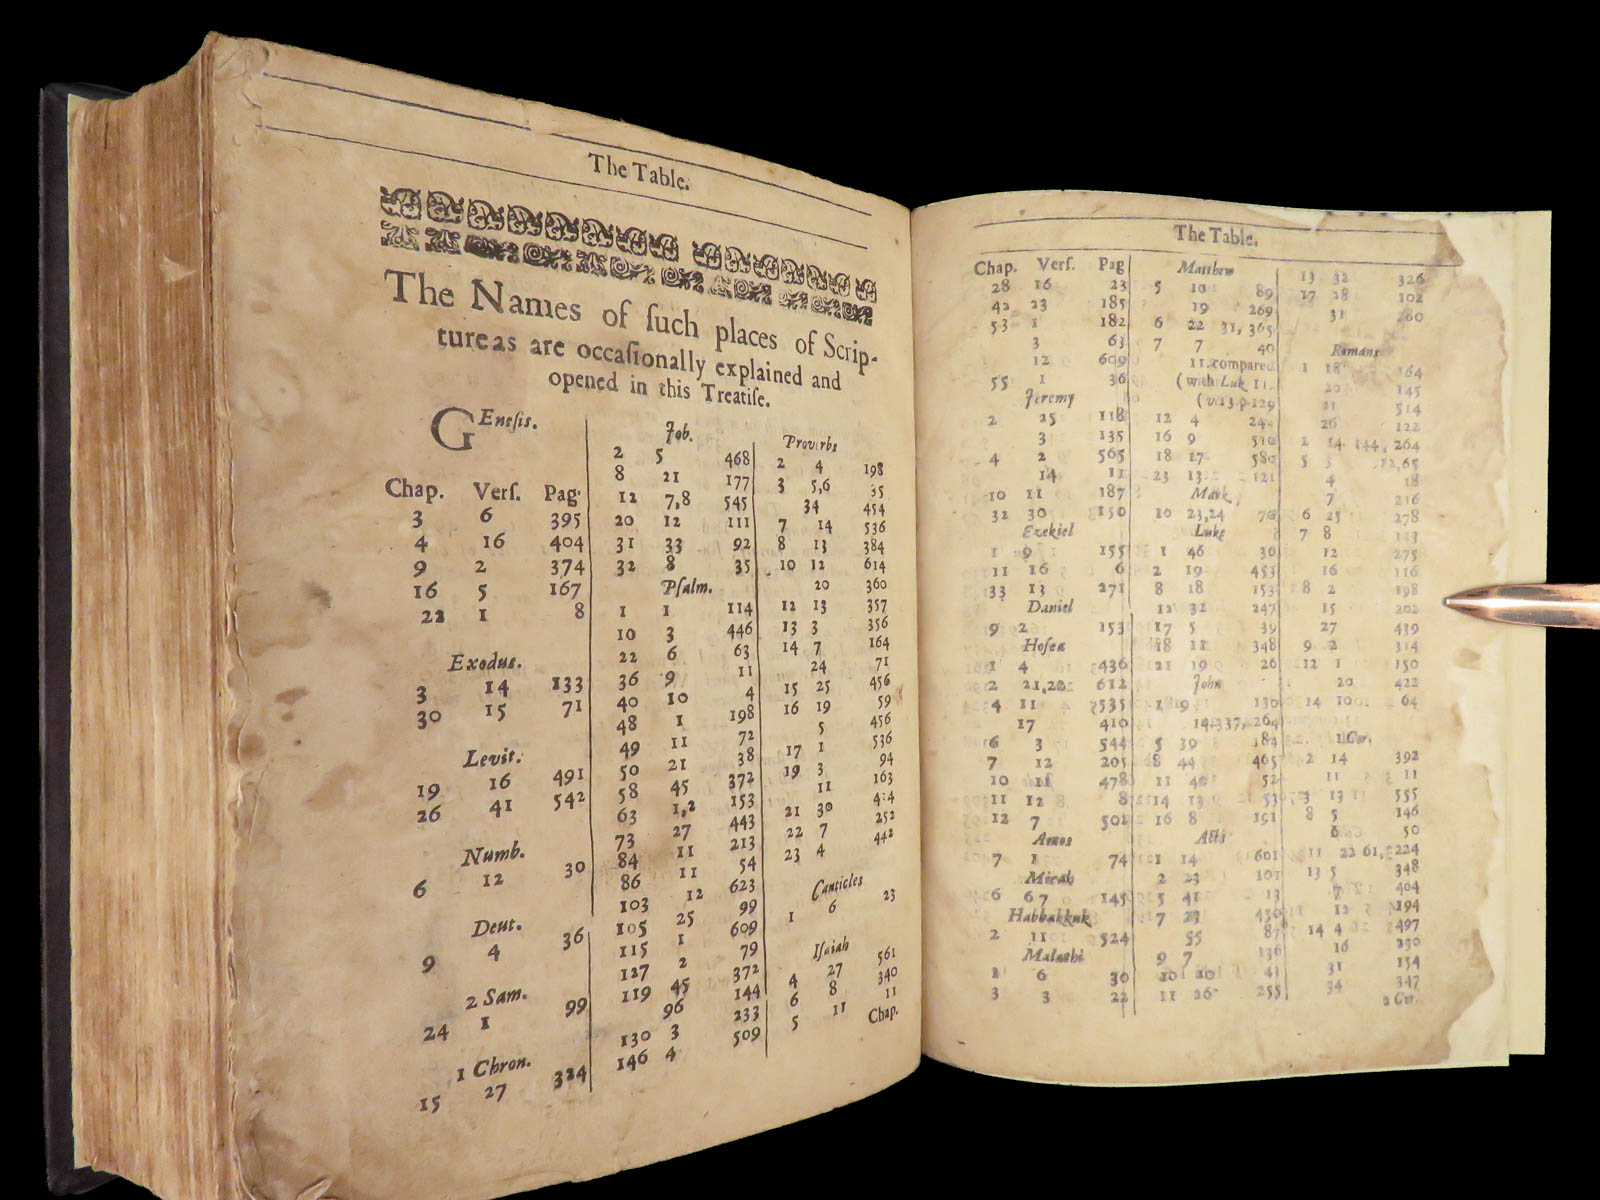 The Table.
The Names of ſuch places of Scrip-
ture as are occaſionally explained and
opened in this Treatiſe.
GEneſis.
Chap. Verſ. Pag.
3 6 395
4 16 404
9 2 374
16 5 167
22 1 8
Exodus.
3 14 133
30 15 71
Levit.
19 16 491
26 41 542
Numb.
6 12 30
Deut.
9 4 36
2 Sam.
24 1 99
1 Chron.
15 27 324
Job.
2 5 468
8 21 177
12 7,8 545
20 12 111
31 33 92
32 8 35
Pſalm.
1 1 114
10 3 446
22 6 63
36 9 11
40 10 4
48 1 198
49 11 72
50 21 38
58 45 372
63 1,2 153
73 27 443
84 11 213
86 11 54
103 12 623
105 25 99
115 1 609
127 2 79
119 45 372
96 144
130 3 233
146 4 509
Proverbs
2 4 198
3 5,6 35
34 454
7 14 536
8 13 384
10 12 614
20 360
12 13 357
13 3 356
14 7 164
24 71
15 25 456
16 19 59
5 456
17 1 536
19 3 94
11 163
21 30
22 7 252
23 4 442
Canticles
1 6 23
Iſaiah
4 27 561
6 8 340
5 11 11
Chap.
The Table.
Chap. Verſ. Pag
28 16 23
42 23 185
53 1 182
3 63
12 609
55 1 36
Jeremy
2 25 118
3 135
4 2 565
14 11
10 11 187
32 30 150
Ezekiel
1 9 155
11 16 6
33 13 271
Daniel
9 2 153
Hoſea
1 4 436
2 21,22 612
4 11 535
17 410
6 3 544
7 12 205
10 11 478
11 12 8
12 7 502
Amos
7 1 74
Micah
6 6 7 145
Habbakkuk
2 11 524
Malachi
1 6 30
3 3 22
Matthew
5 10 89
19 269
6 22 31, 365
7 7 40
11. compared
(with Luk. 11.
(v. 13. p. 129
12 4 24
16 9 510
18 17 580
23 13 121
Mark
10 23,24 76
Luke
1 46 36
2 19 453
8 18 153
12 32 247
17 5 39
18 11 348
21 19 26
John
1 9 130
14. 337, 264
5 39 184
8 44 465
11 40 52
14 13 53
16 8 191
Acts
1 14 601
2 23 101
5 41 13
7 23 456
55 87
9 7 136
10 20 43
11 26 255
13 32 326
17 28 102
31 280
Romans
1 18 164
20 145
21 514
26 122
2 14 144, 264
5 5 12,65
4 18
7 216
6 23 278
7 8 143
12 275
16 116
8 2 198
15 202
27 439
9 2 314
12 1 150
20 422
14 10 64
1 Cor.
2 14 392
11 11
3 13 555
8 5 146
6 50
11 22 61, 224
13 5 348
7 404
12 194
14 4 497
16 230
31 154
34 347
2 Cor.